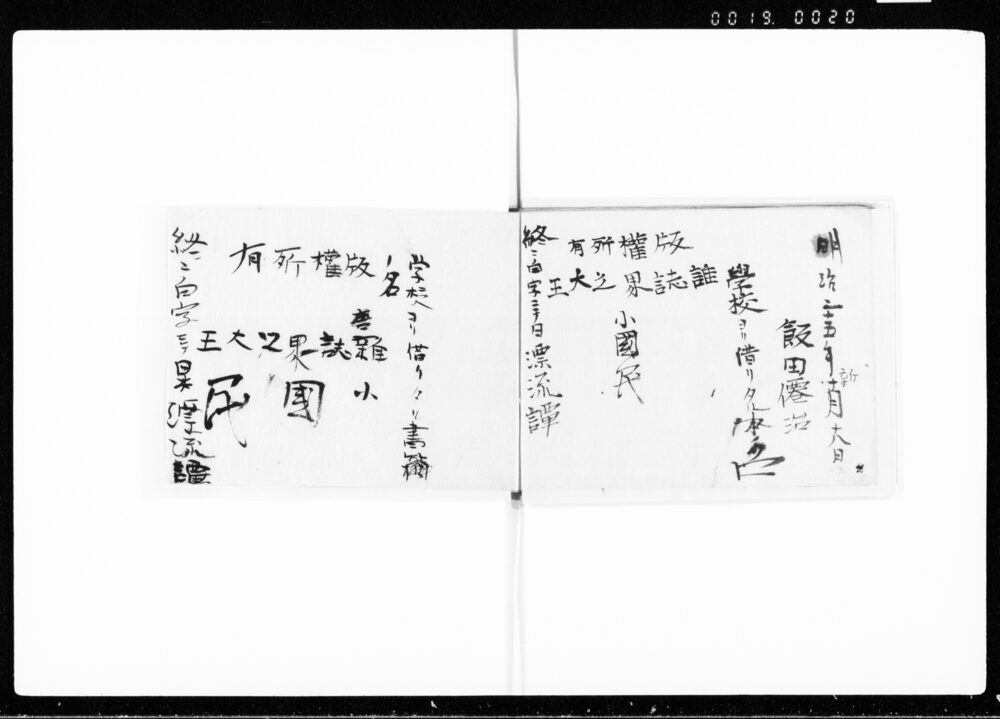 0019. 0020
明治二十五年新十月十六日
飯田僊治
學校ヨリ借リタル本名
版權所有
雜誌界之大王
小國民
終ニ白字ニテ曰漂流譚
学校ヨリ借リタル書籍
名
版權所有
雜誌界之大王
小國民
終ニ白字ニテ曰漂流譚